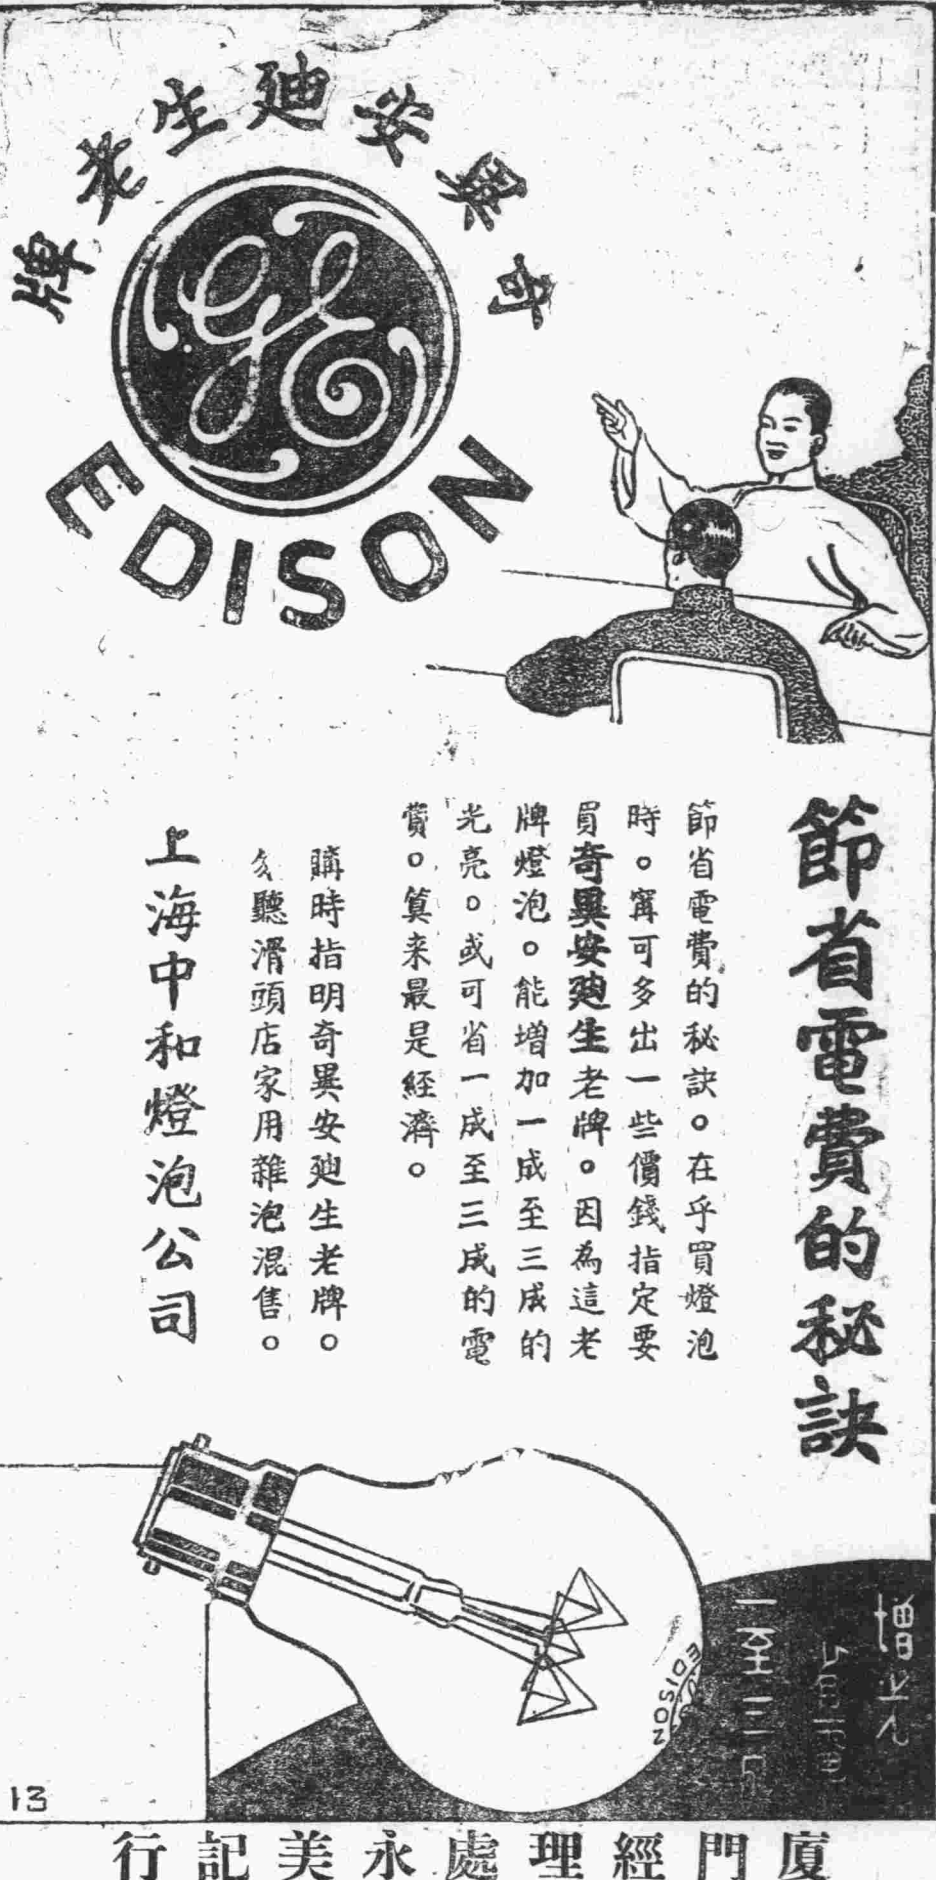 奇異安廸生老牌
GE
EDISON
節省電費的秘訣
節省電費的秘訣。在乎買燈泡
時。寗可多出一些價錢指定要
買奇異安廸生老牌。因為這老
牌燈泡。能增加一成至三成的
光亮。或可省一成至三成的電
費。算来最是經濟。
購時指明奇異安廸生老牌。
勿聽滑頭店家用雜泡混售。
上海中和燈泡公司
增光
省電
一至三
EDISON
13
廈門經理處永美記行